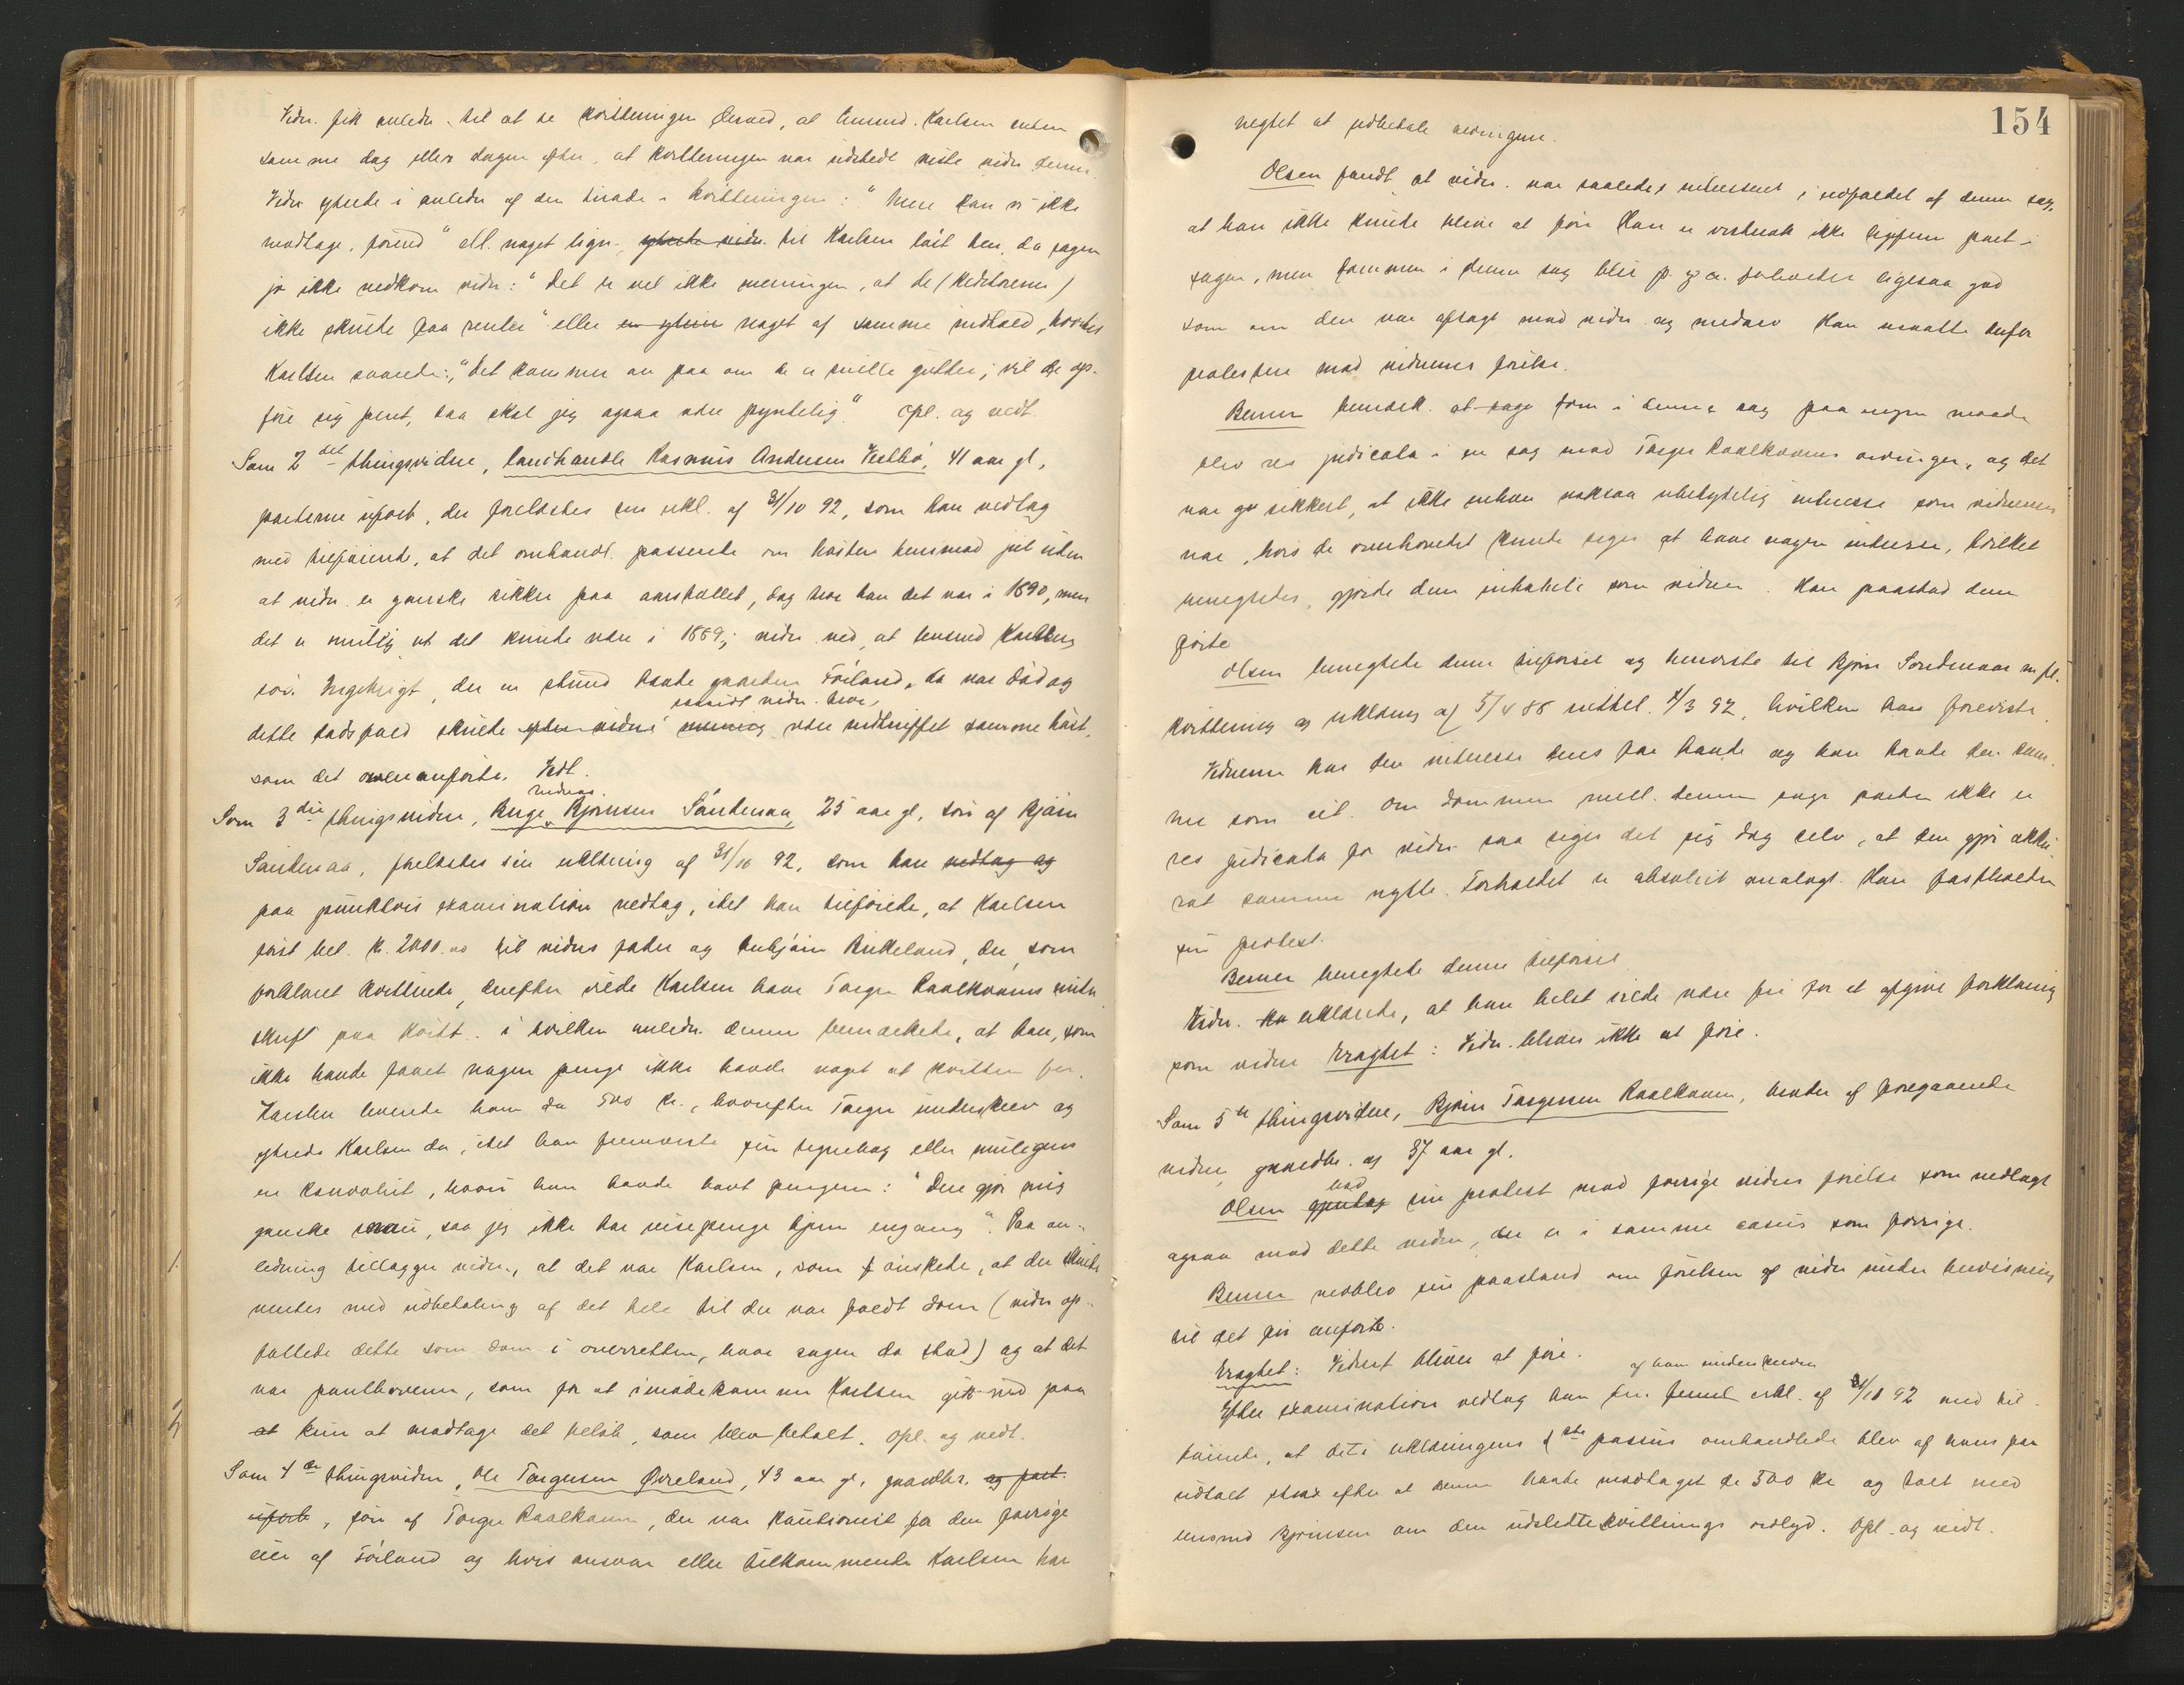 Vidn. fik anledn. til at se kvitteringen derved, at lensmd. Karlsen enten
samme dag eller dagen efter, at kvitteringen var udstedt viste vidn. denne.
Vidn. ytrede i anledn. af den tirade i kvitteringen: "Mere kan vi ikke
modtage, forend" ell. noget lign., ytrede vidn. til Karlsen løst hen, da sagen
jo ikke vedkom vidn: "Det er vel ikke meningen, at de (kreditorerne)
ikke skulde faa renter" eller en ytring noget af samme indhold, hvortil
Karlsen svarede: "Det kommer an paa om de er snille gutter; vil de op-
føre sig pent, saa skal jeg ogsaa være pyntelig". Opl. og vedt.
Som 2det thingsvidne, landhandler Rasmus Andersen Vestbø, 41 aar gl,
parterne uforb., der forelæstes sin erkl. af 31/10 92, som han vedtog
med tilføiende, at det omhandl. passerede om høsten hensmod jul uden
at vidn. er ganske sikker paa aarstallet, dog tror han det var i 1890, men
det er mulig at det kunde være i 1889; vidn. ved, at lensmd Karlsens
søn Ingebrigt, der en stund havde gaarden Tøiland, da var død og
dette dødsfald skulde efter vidnes mening være indtruffet samme høst,
saavidt vidn. tror,
som det ovenanførte. Vedt.
Som 3die thingsvidne, Aage Bjørnsen Sandenaa, 25 aar gl, søn af Bjørn
Sandenaa, forelæstes sin erklæring af 31/10 92, som han vedtog og
paa punktvis examination vedtog, idet han tilføiede, at Karlsen
først bet. Kr. 2000.00 til vidnes fader og Torbjørn Birkeland, der, som
forklaret kvitterede, derefter vilde Karlsen have Torger Raalkvams under
skrift paa kvitt. i hvilken anledn. denne bemærkede, at han, som
ikke havde faaet nogen penge ikke havde noget at kvittere for.
Karlsen leverede ham da 500 kr., hvorefter Torger underskrev og
ytrede Karlsen da, idet han fremviste sin tegnebog eller muligens
en konvolut, hvori han havde havt pengene: "Dere gjør mig
ganske snau, saa jeg ikke har reisepenge hjem engang". Paa an-
ledning tillægger vidn., at det var Karlsen, som ønskede, at der skulde
ventes med udbetaling af det hele til der var faldt dom (vidn. op-
fattede dette som dom i overretten, hvor sagen da stod) og at det
var panthaverne, som for at imødekomme Karlsen gik ind paa
at kun at modtage det beløb, som blev betalt. Opl. og vedt.
Som 4de thingsvidne, Ole Torgersen Øvreland, 43 aar gl., gaardbr. og part.
uforb., søn af Torger Raalkvam, der var kautionist for den forrige
eier af Tøiland og hvis ansvar eller tilkommende Karlsen har
154
negtet at udbetale arvingerne.
Olsen fandt at vidn. var saaledes interesseret i udfaldet af denne sag,
at han ikke kunde blive at føre. Han er vistnok ikke ligefrem part i
sagen, men dommen i denne sag blir p. gr. a. forholdet ligesaa god
som om den var afsagt mod vidn. og medarv. Han maatte derfor
protestere mod vidnernes førelse.
Berner bemærk. at sage dom i denne sag paa ingen maade
blev res judicata i en sag mod Torger Raalkvams arvinger, og det
var gr sikkert, at ikke enhver noksaa ubetydelig interesse som vidnernes
var, hvis de overhovedet kunde siges at have nogen interesse, hvilket
benegtedes, gjorde dem inhabile som vidner. Han paastod dem
førte
Olsen benegtede denne tilførsel og henviste til Bjørn Sandenaas m.fl.
kvittering og erklæring af 5/4 88 vitthl. 4/3 92, hvilken han foreviste.
Vidnerne har den interesse deres far havde og han havde den sam-
me som eit. Om dommen mell. denne sags parter ikke er
res judicata for vidn. saa siger det sig dog selv, at den gjør akku-
rat samme nytte. Forholdet er absolut analogt. Han fastholdt
sin protest.
Berner benegtede denne tilførsel
Vidn. ha erklærede, at han helst vilde være fri for at afgive forklaring
som vidne. Eragtet: Vidn. bliver ikke at føre.
Som 5te thingsvidne, Bjørn Torgersen Raalkvam, broder af foregaaende
vidne, gaardbr. og 37 aar gl.
Olsen gjentog sin protest mod forrige vidnes førelse som vedlagt
ogsaa mod dette vidne, der er i samme casus som forrige.
Berner vedblev sin paastand om førelsen af vidn. under henvisning
til det før anførte.
Eragtet: Vidnet bliver at føre.
af ham underskrevne
Efter examination vedtog han sin fremt. erkl. af 31/10 92 med til-
føiende, at det i erklæringens 1ste passus omhandlede blev af hans far
udtalt strax efter at denne havde modtaget de 500 kr og talt med
lensmd Bjørnsen om den udstedte kvitterings ordlyd. Opl. og vedt.